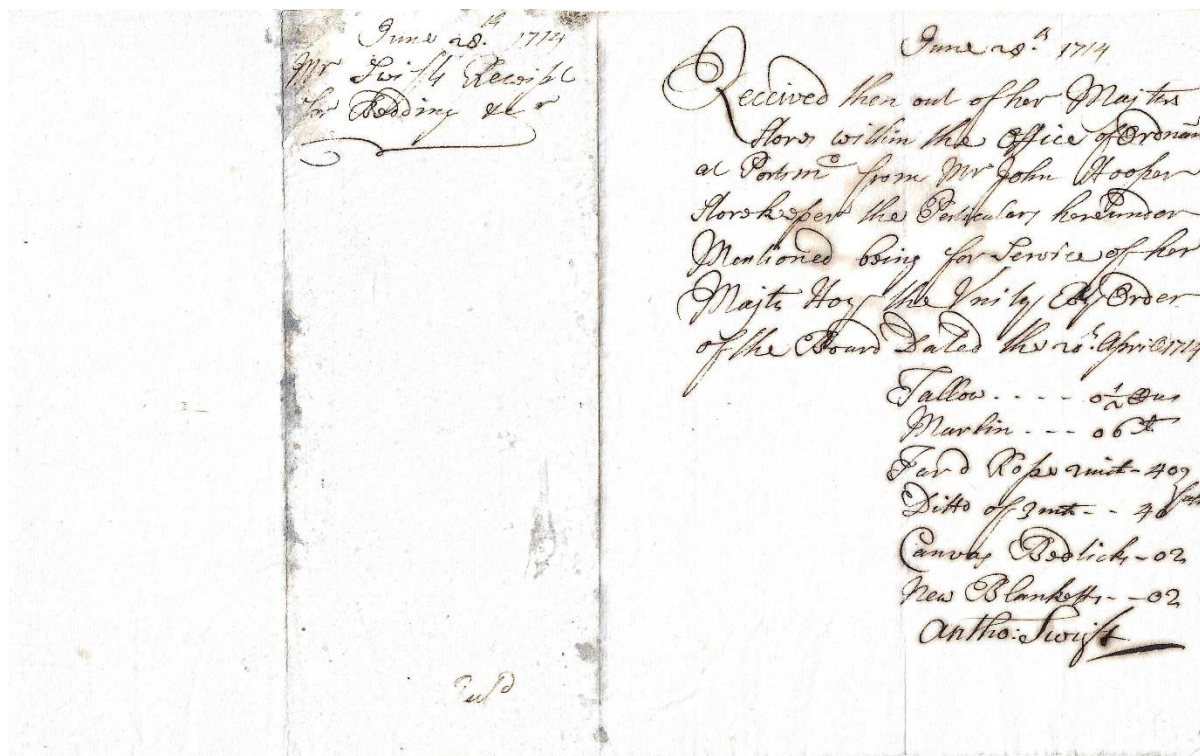 June 28.th 1714
Mr Swifts Receipt
for Bedding &c
June 28.th 1714
Received then out of her Majties
Stores within the Office of Ordnan
at Portsmo from Mr John Hooper
Storekeeper the Perticulars hereunder
Mentioned being for Service of her
Majts Hoy the Vnity By Order
of the Board Dated the 20th April 1714
Tallow .... 0½
Marlin --- 06
Tar'd Rope 2 - 40
Ditto of 3 -- 40
Canvas Bedticks - 02
New Blanketts -- 02
Antho: Swift